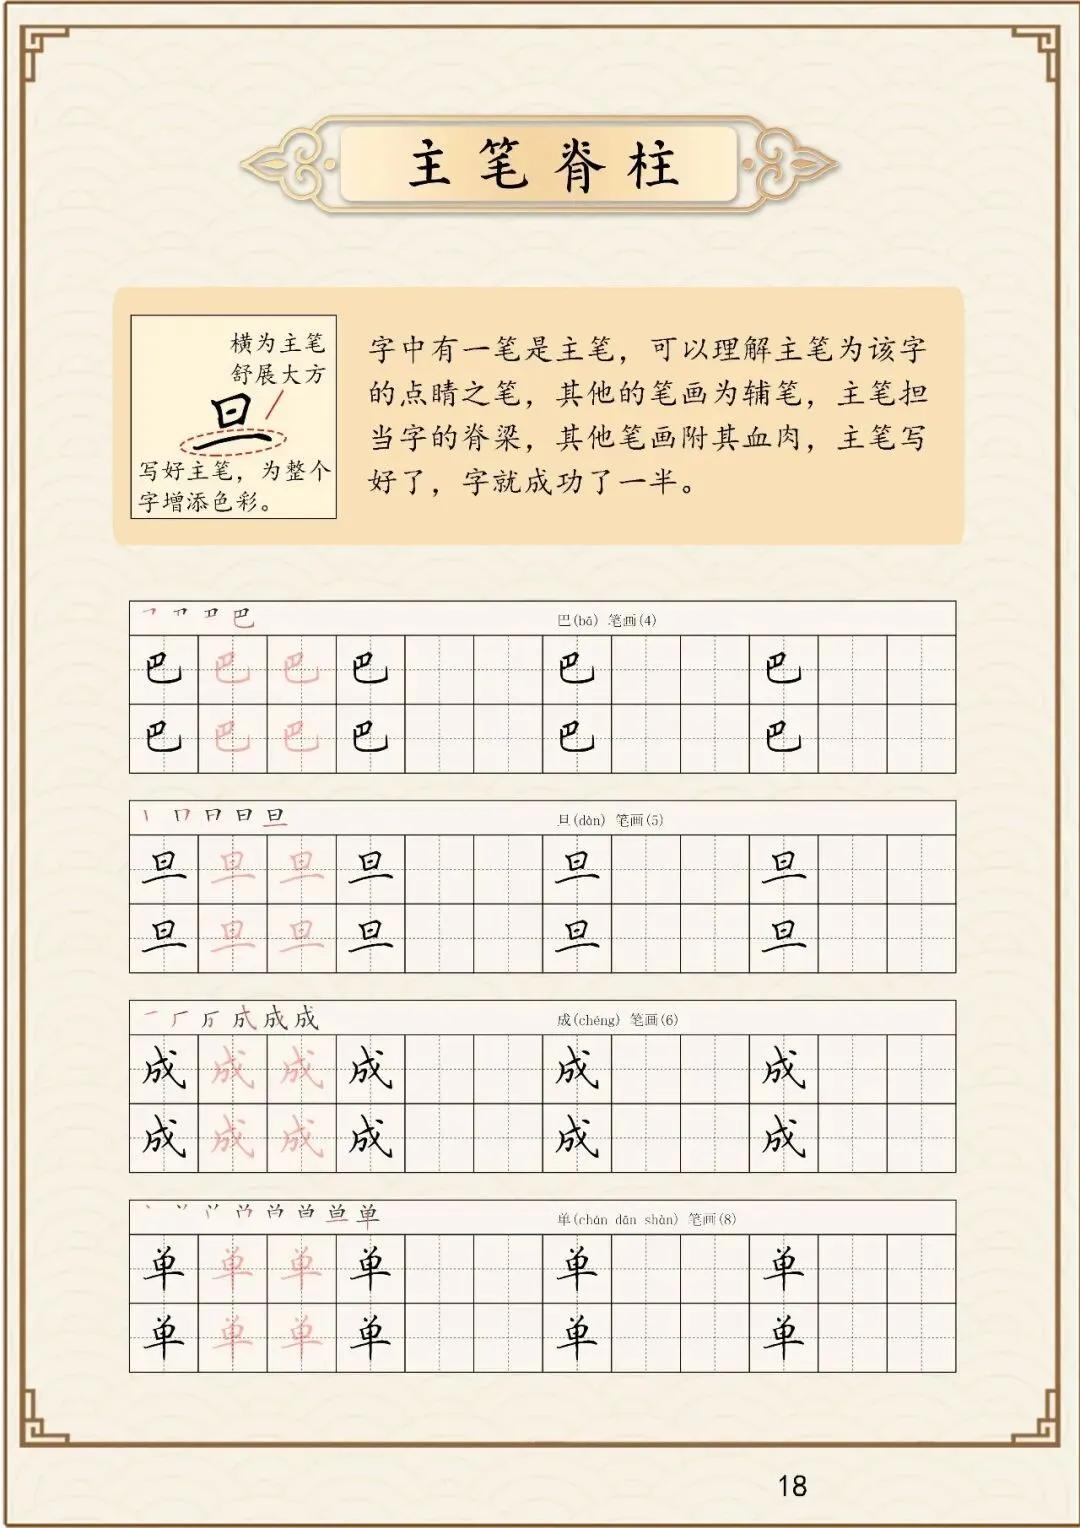 主笔脊柱
横为主笔
舒展大方
旦
写好主笔，为整个
字增添色彩。
字中有一笔是主笔，可以理解主笔为该字
的点睛之笔，其他的笔画为辅笔，主笔担
当字的脊梁，其他笔画附其血肉，主笔写
好了，字就成功了一半。
巴 巴(bā) 笔画(4)
巴 巴 巴 巴 巴 巴
巴 巴 巴 巴 巴 巴
日 旦 旦(dàn) 笔画(5)
旦 旦 旦 旦 旦 旦
旦 旦 旦 旦 旦 旦
成 成(chéng) 笔画(6)
成 成 成 成 成 成
成 成 成 成 成 成
单 单(chán dān shàn) 笔画(8)
单 单 单 单 单 单
单 单 单 单 单 单
18